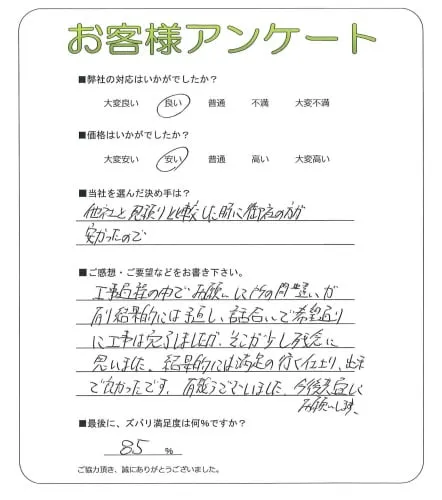 お客様アンケート
■弊社の対応はいかがでしたか?
大変良い 良い 普通 不満 大変不満
■価格はいかがでしたか?
大変安い 安い 普通 高い 大変高い
■当社を選んだ決め手は?
他社と見積りと比較した時に御社の方が
安かったので
■ご感想・ご要望などをお書き下さい。
工事過程の中でお願いした所の間違いが
有り結果的には手直し、話合いで希望通り
に工事は完了しましたが、そこが少し残念に
思いました、結果的には満足の行く仕上り、出来
で良かったです、有難うございました、今後共宜しく
お願いします、
■最後に、ズバリ満足度は何%ですか?
85 %
ご協力頂き、誠にありがとうございました。